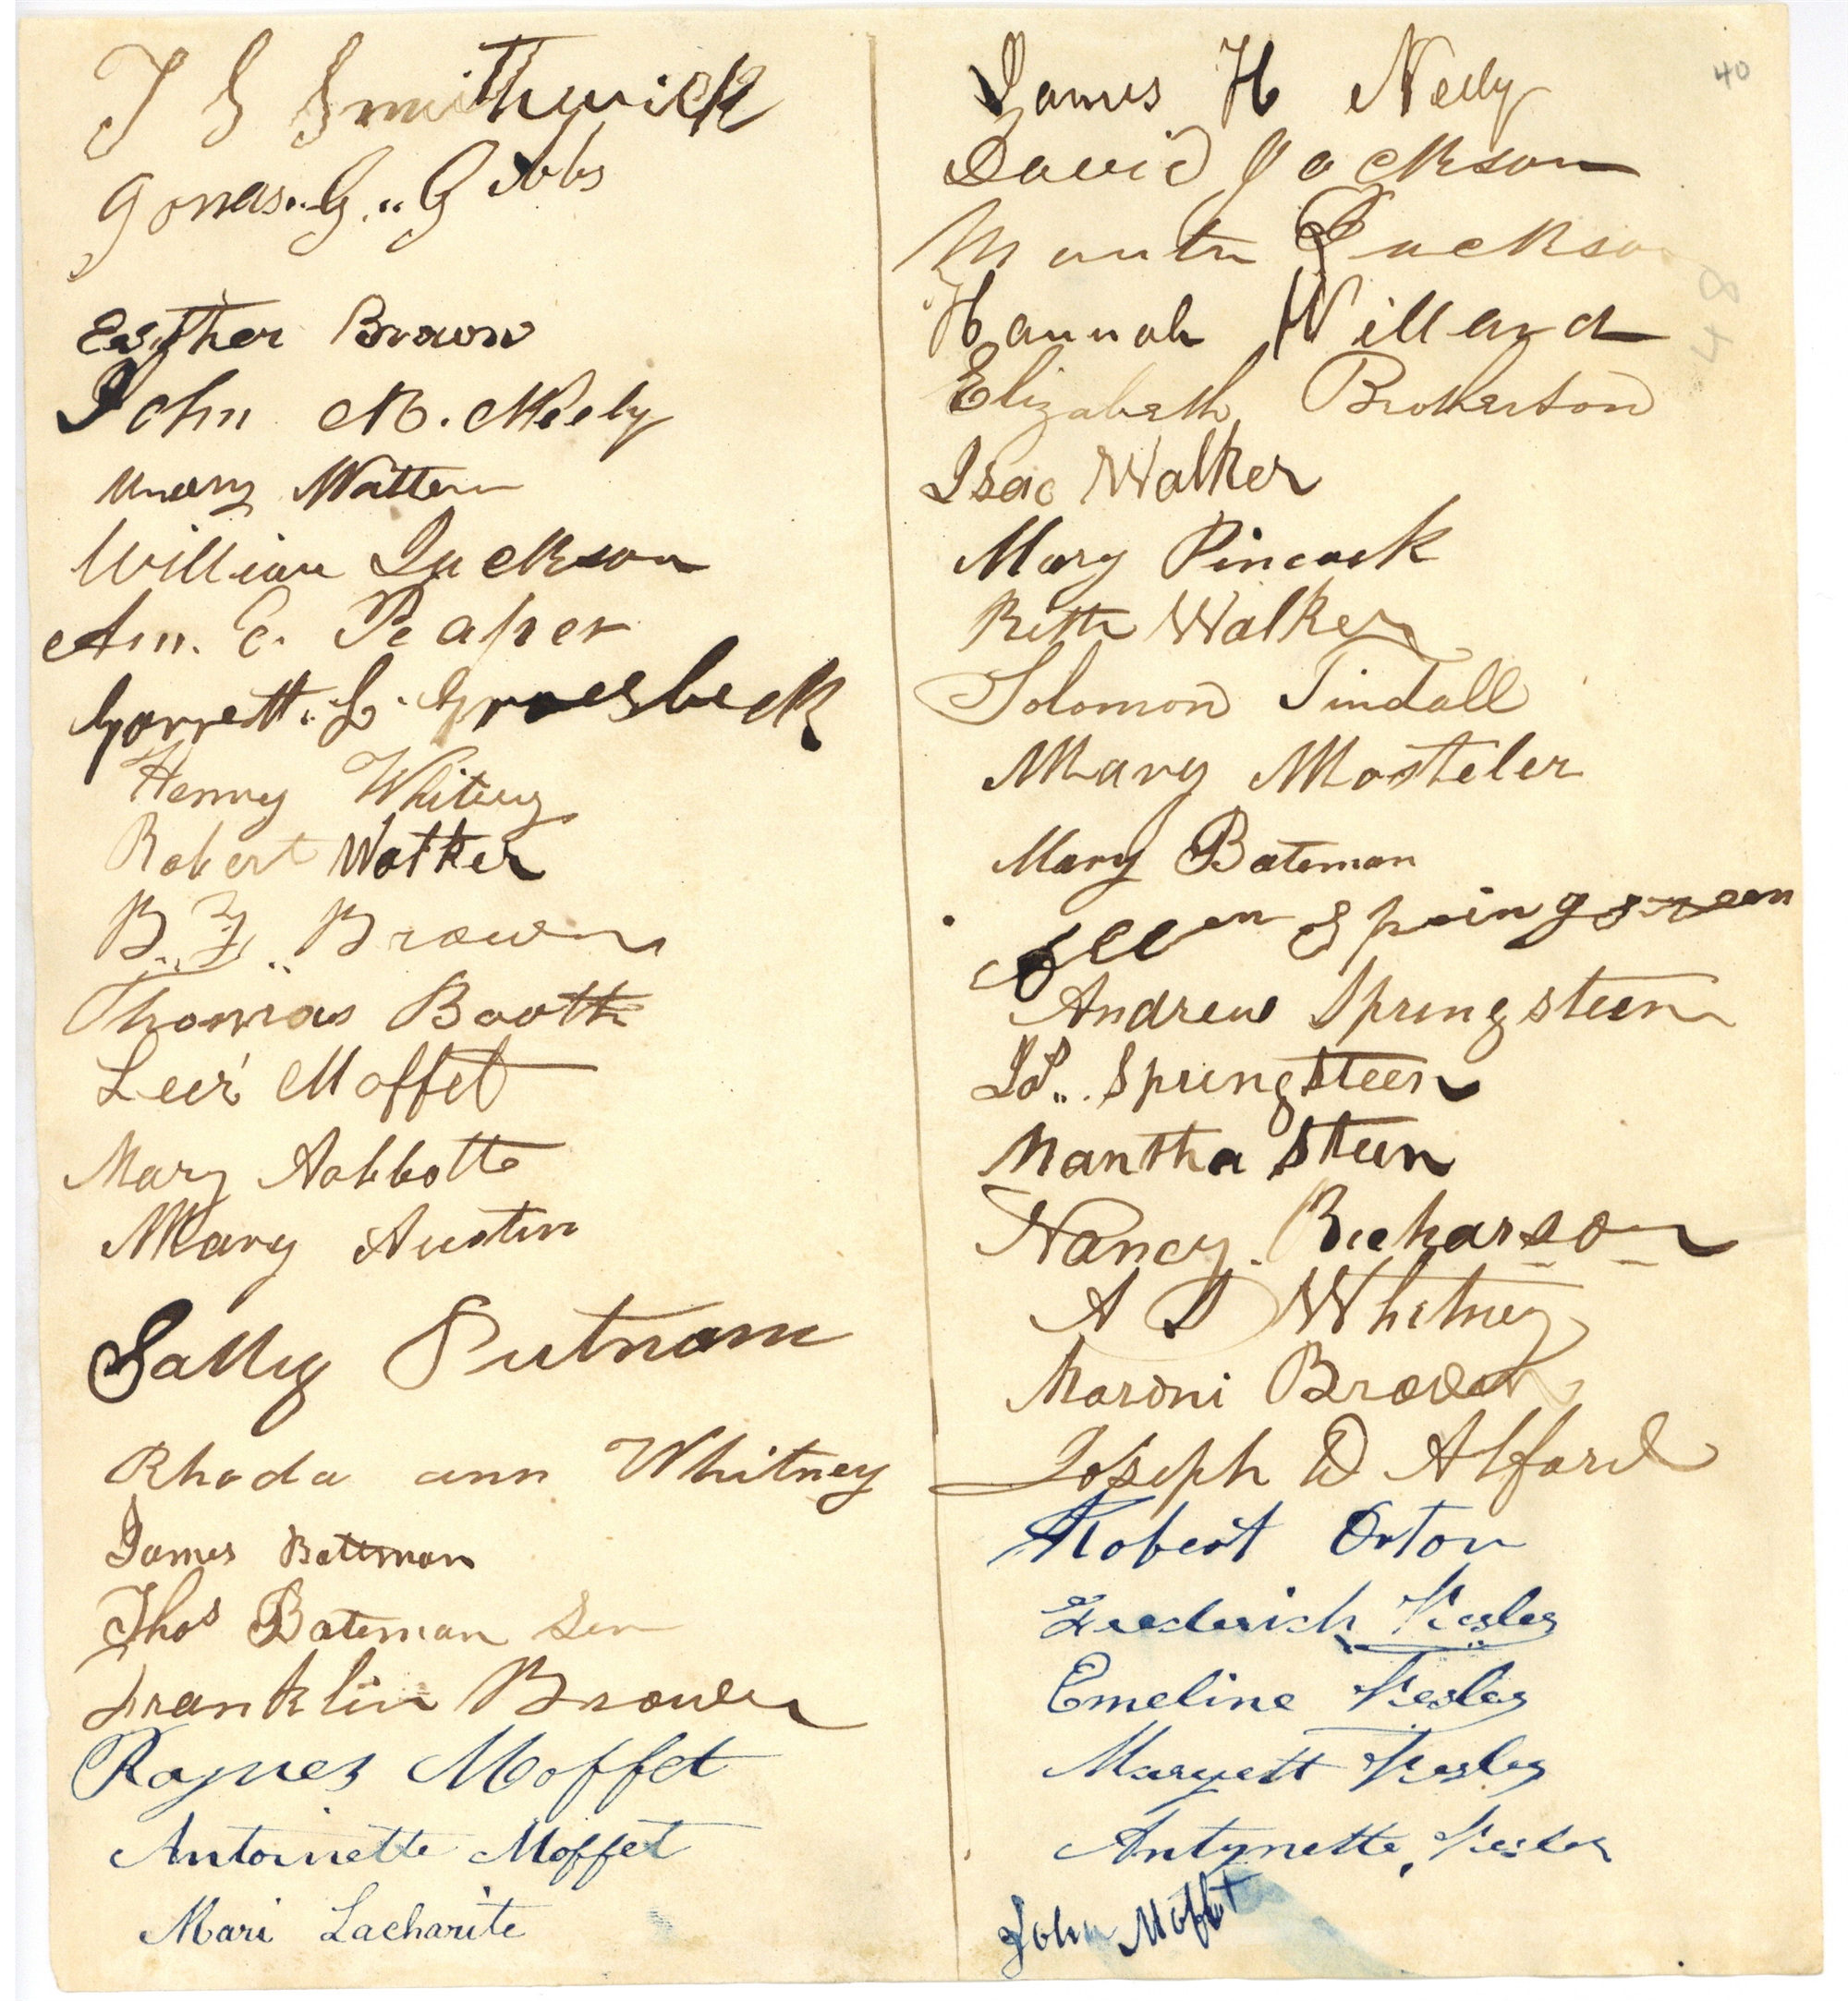 T S Smithwick
Jonas. G. Gibbs
Esther Brown
John M. Neely
William Jackson
Am. E. Peaper
Garrett. L. Groesbeck
Henry Whiting
Robert Walker
B. Y. Brown
Thomas Booth
Levi Moffet
Mary Aobbotte
Mary Austin
Sally Putnam
Rhoda ann Whitney
James Bateman
Thos Bateman Sen
Franklin Brown
Moffet
Antoinette Moffet
Mari Lacharite
40
James H Neely
David Jackson
Jackson
Hannah Willard
Elizabeth Brotherton
Isac Walker
Mary Pincock
Walker
Solomon Tindall
Mary Mosteler
Mary Bateman
Springsteen
Andrew Springsteen
Springsteen
Mantha Steen
Nancy. Richarson
A D Whitney
Maroni Brown
Joseph D Alford
Robert Orton
Frederick Kesley
Emeline Kesley
Maryett Kesley
Antynette, Kesley
John Moffet
484